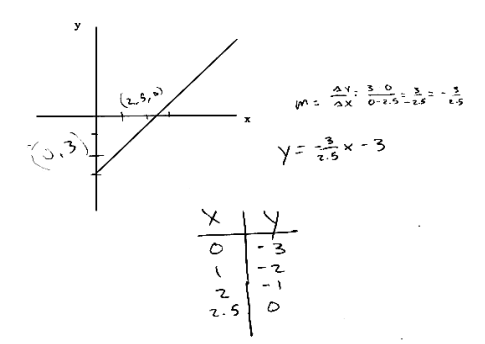 y
(2.5,0)
x
(0,3)
m = Δy/Δx = 3 0/0-2.5 = 3/-2.5 = -3/2.5
y = -3/2.5 x - 3
X | Y
0 | -3
1 | -2
2 | -1
2.5 | 0